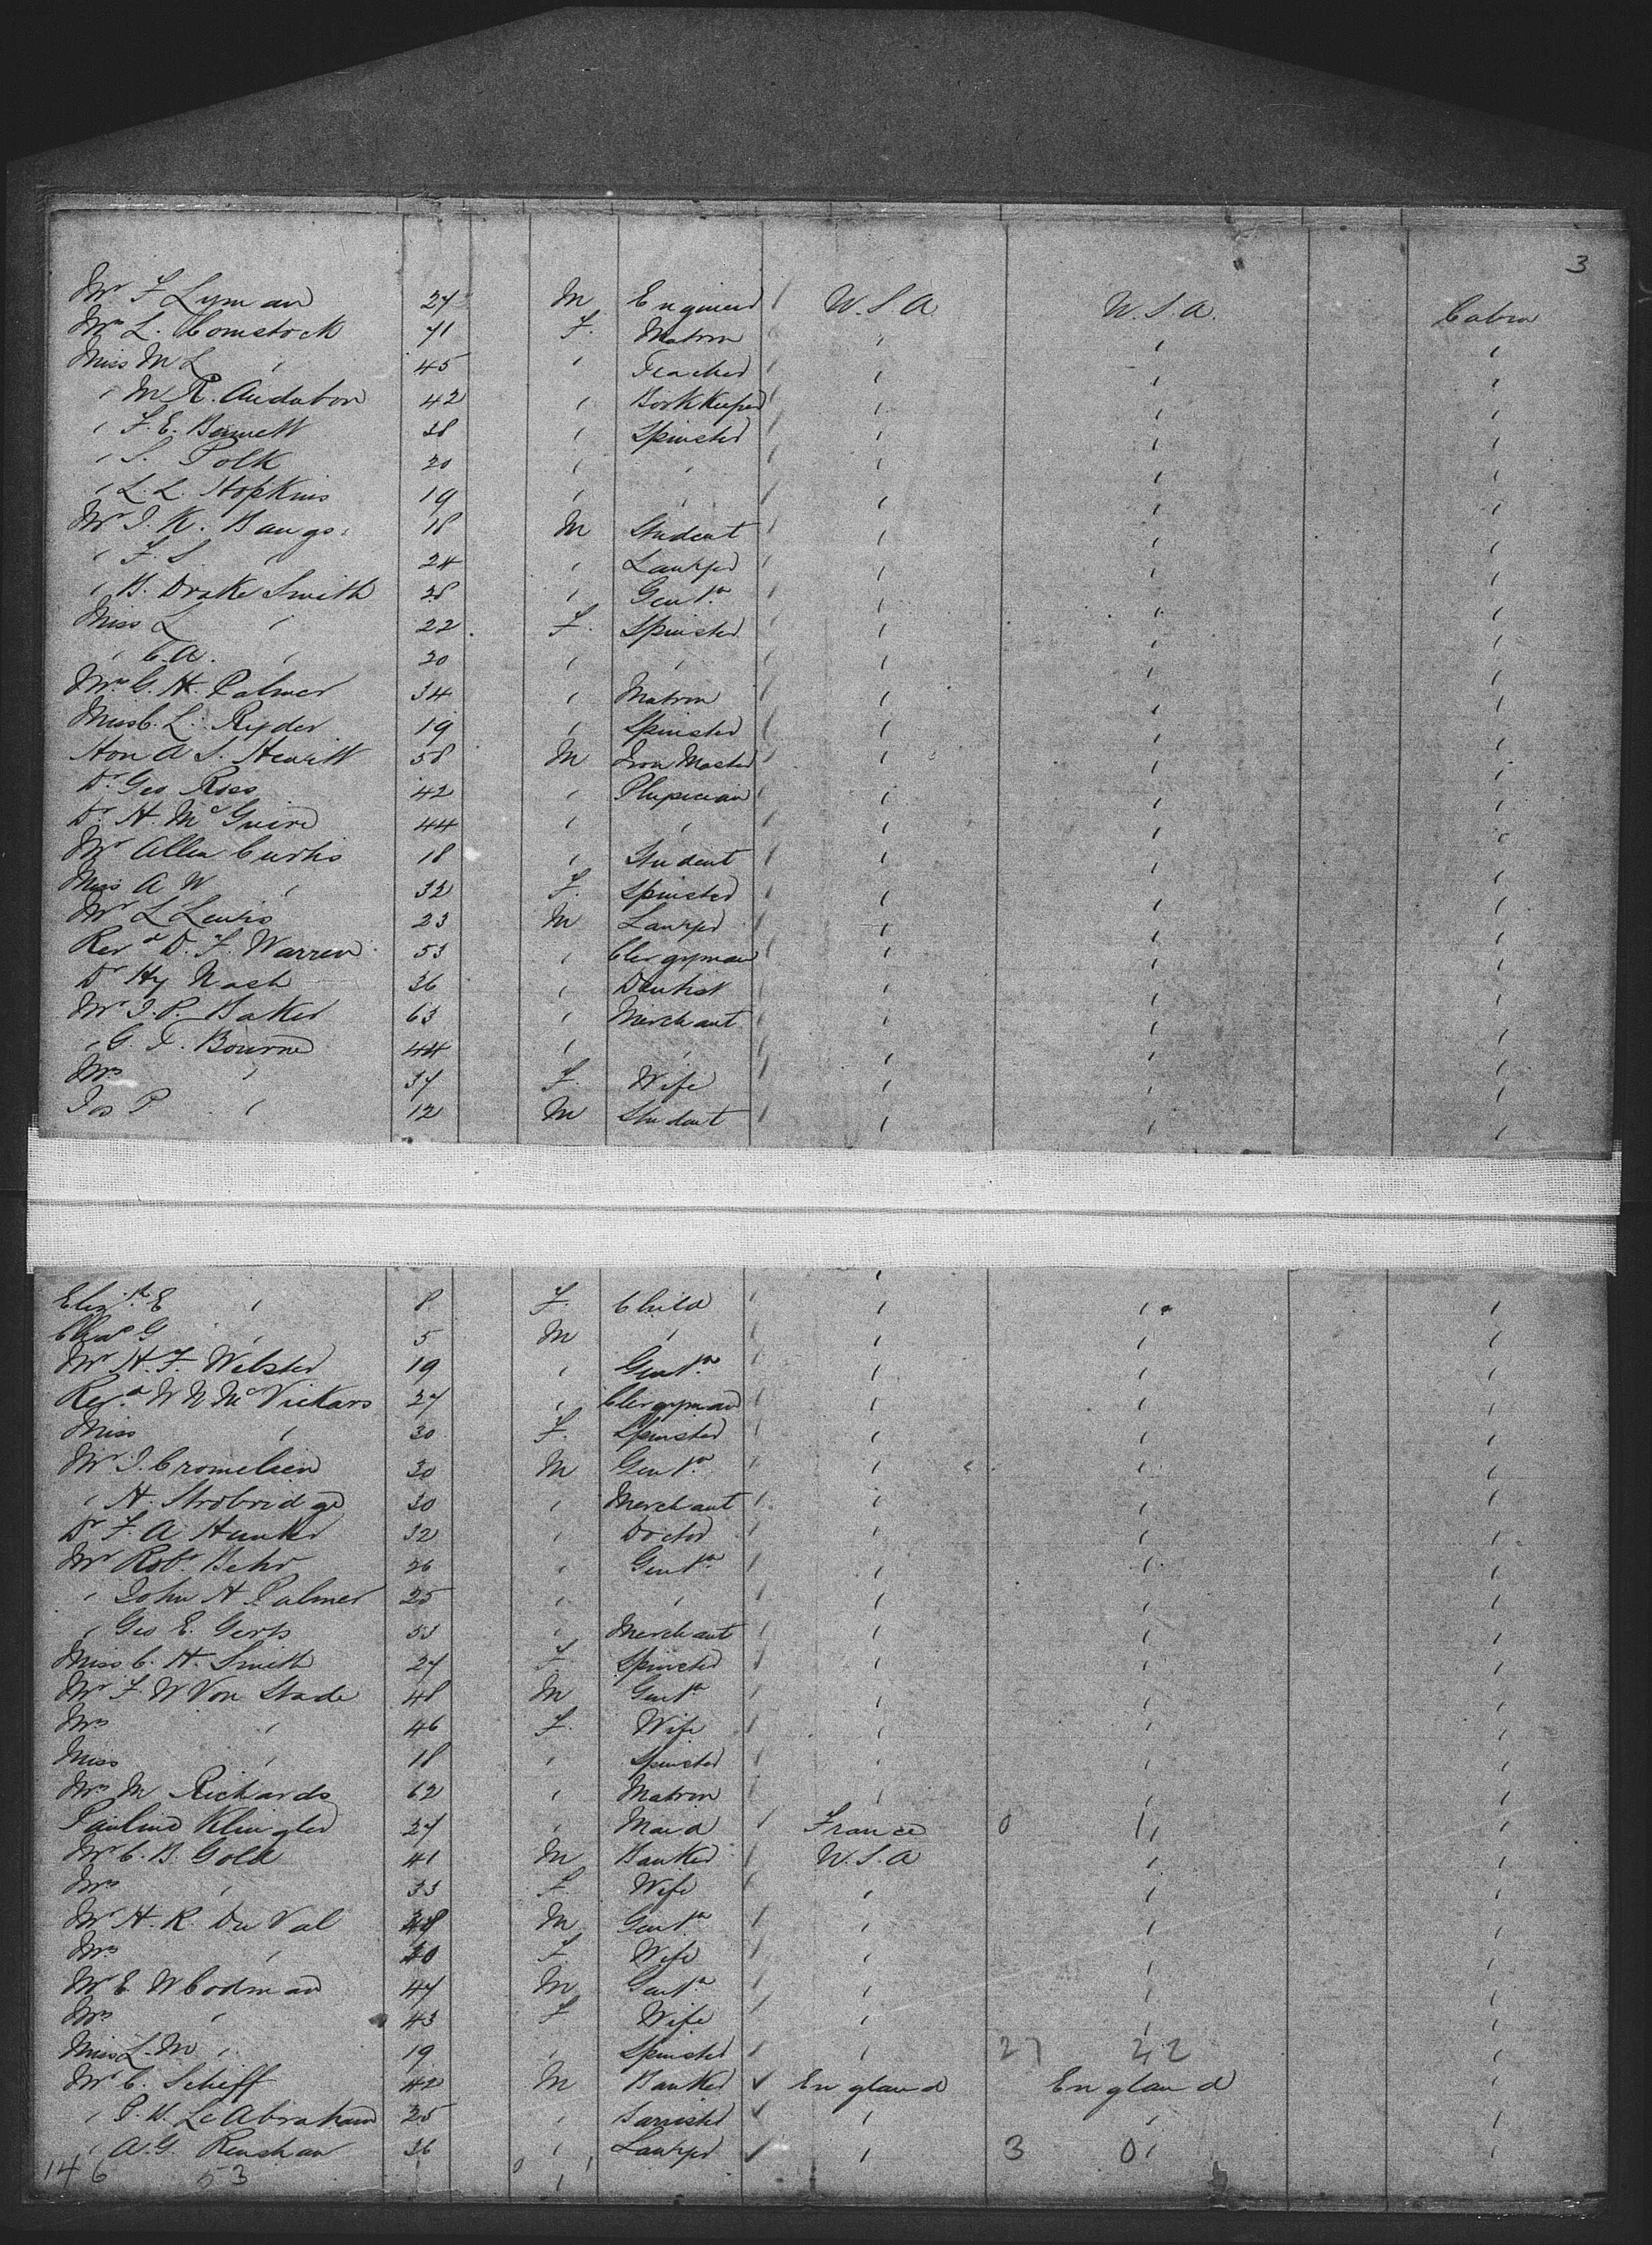 3
Mr F Lyman 27 M Engineer U.S.A. U.S.A. Cabin
Mrs L. Comstock 71 F. Matron " " "
Miss M L " 45 " Teacher " " "
" M R. Audubon 42 " Bookkeeper " " "
" F. E. Bennett 38 " Spinster " " "
" S. Polk 20 " " " " "
" L. L. Hopkins 19 " " " " "
Mr I. K. Bangs 18 M Student " " "
" F. S " 24 " Lawyer " " "
" B. Drake Smith 28 " Gentn " " "
Miss L " 22 F. Spinster " " "
" C. A. " 20 " " " " "
Mrs G. H. Palmer 34 " Matron " " "
Miss C. L. Ryder 19 " Spinster " " "
Hon A S. Hewitt 58 M Iron Master " " "
Dr Geo Ross 42 " Physician " " "
Dr H. McGuire 44 " " " " "
Mr Allen Curtis 18 " Student " " "
Miss A W " 32 F. Spinster " " "
Mr L Lewis 23 M Lawyer " " "
Revd D. F. Warren 53 " Clergyman " " "
Dr Hy Nash 36 " Dentist " " "
Mr I. P. Baker 63 " Merchant " " "
" G. F. Bourne 44 " " " " "
Mrs " 37 F. Wife " " "
Jos P " 12 M Student " " "
Elizth E " 8 F. Child " " "
Chas G " 5 M " " " "
Mr H. F. Webster 19 " Gentn " " "
Revd W N McVickars 27 " Clergyman " " "
Miss " 30 F. Spinster " " "
Mr I. Cromelien 30 M Gentn " " "
" H. Strobridge 30 " Merchant " " "
Dr F. A Hunter 32 " Doctor " " "
Mr Robt Behr 26 " Gentn " " "
" John H Palmer 25 " " " " "
" Geo E. Gerts 53 " Merchant " " "
Miss C. H. Smith 27 F Spinster " " "
Mr F. W Von Stade 48 M Gentn " " "
Mrs " 46 F. Wife " " "
Miss " 18 " Spinster " " "
Mrs M Richards 62 " Matron " " "
Pauline Klingler 27 " Maid France 0 1 " "
Mr C. B. Gold 41 M Banker U.S.A " "
Mrs " 33 F Wife " " "
Mr H. R. Du Val M Gentn " " "
Mrs " F Wife " " "
Mr E W Codman 47 M Gentn " " "
Mrs " 43 F Wife " " "
Miss L. M. " 19 " Spinster " 27 22 "
Mr C. Schiff 42 M Banker England England "
" P. W. Le Abraham 25 " Barrister " " "
" A. G. Renshaw 36 " Lawyer " 3 0 " "
146 53